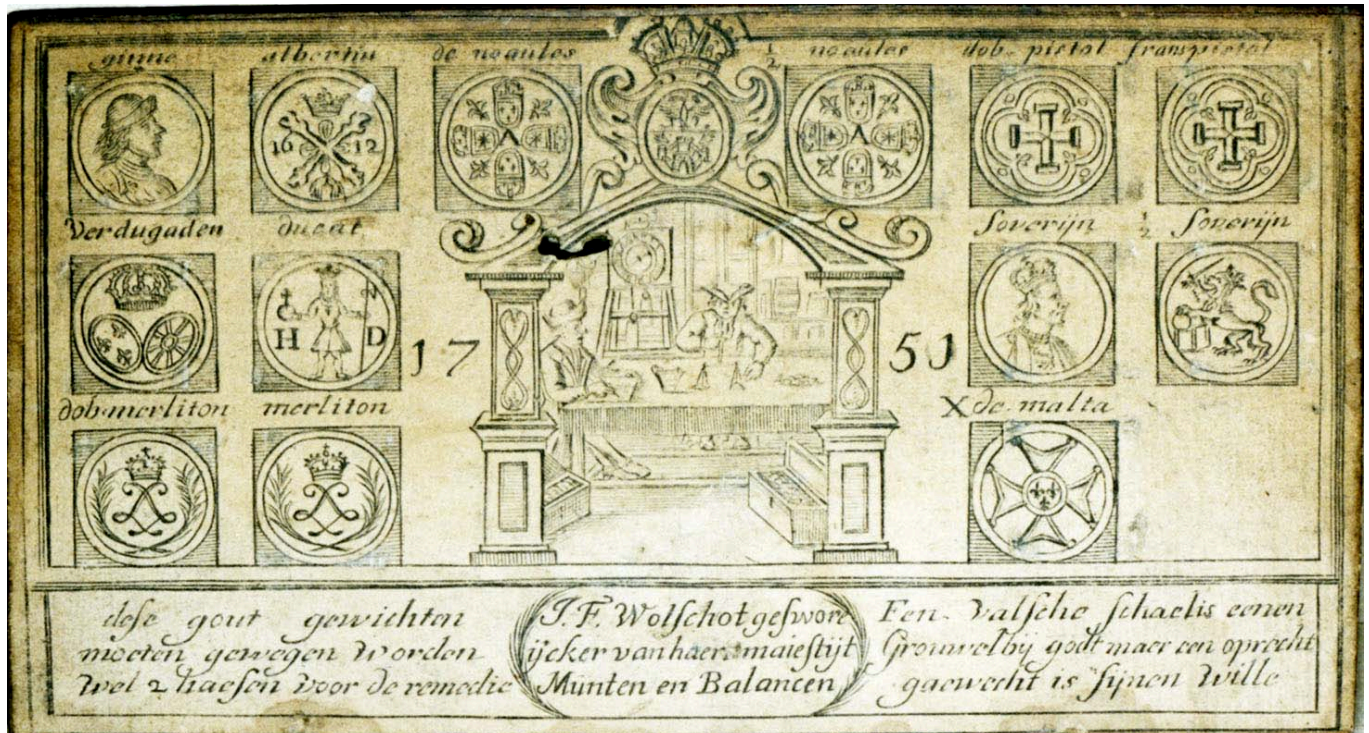 ginne albertin de noailes ½ noailes dob-pistol franspistol
16 12
Verdugaden ducat soverijn ½ soverijn
H D
17 51
dob-merliton merliton X de-malta
dese gout gewichten
moeten gewegen Worden
Wel 2 haesen Voor de remedie
J.F. Wolschot geswore
ijcker van haer maiestijt
Munten en Balancen
Een Valsche schael is eenen
Grouwel bij godt maer een oprecht
gaewecht is sijnen Wille